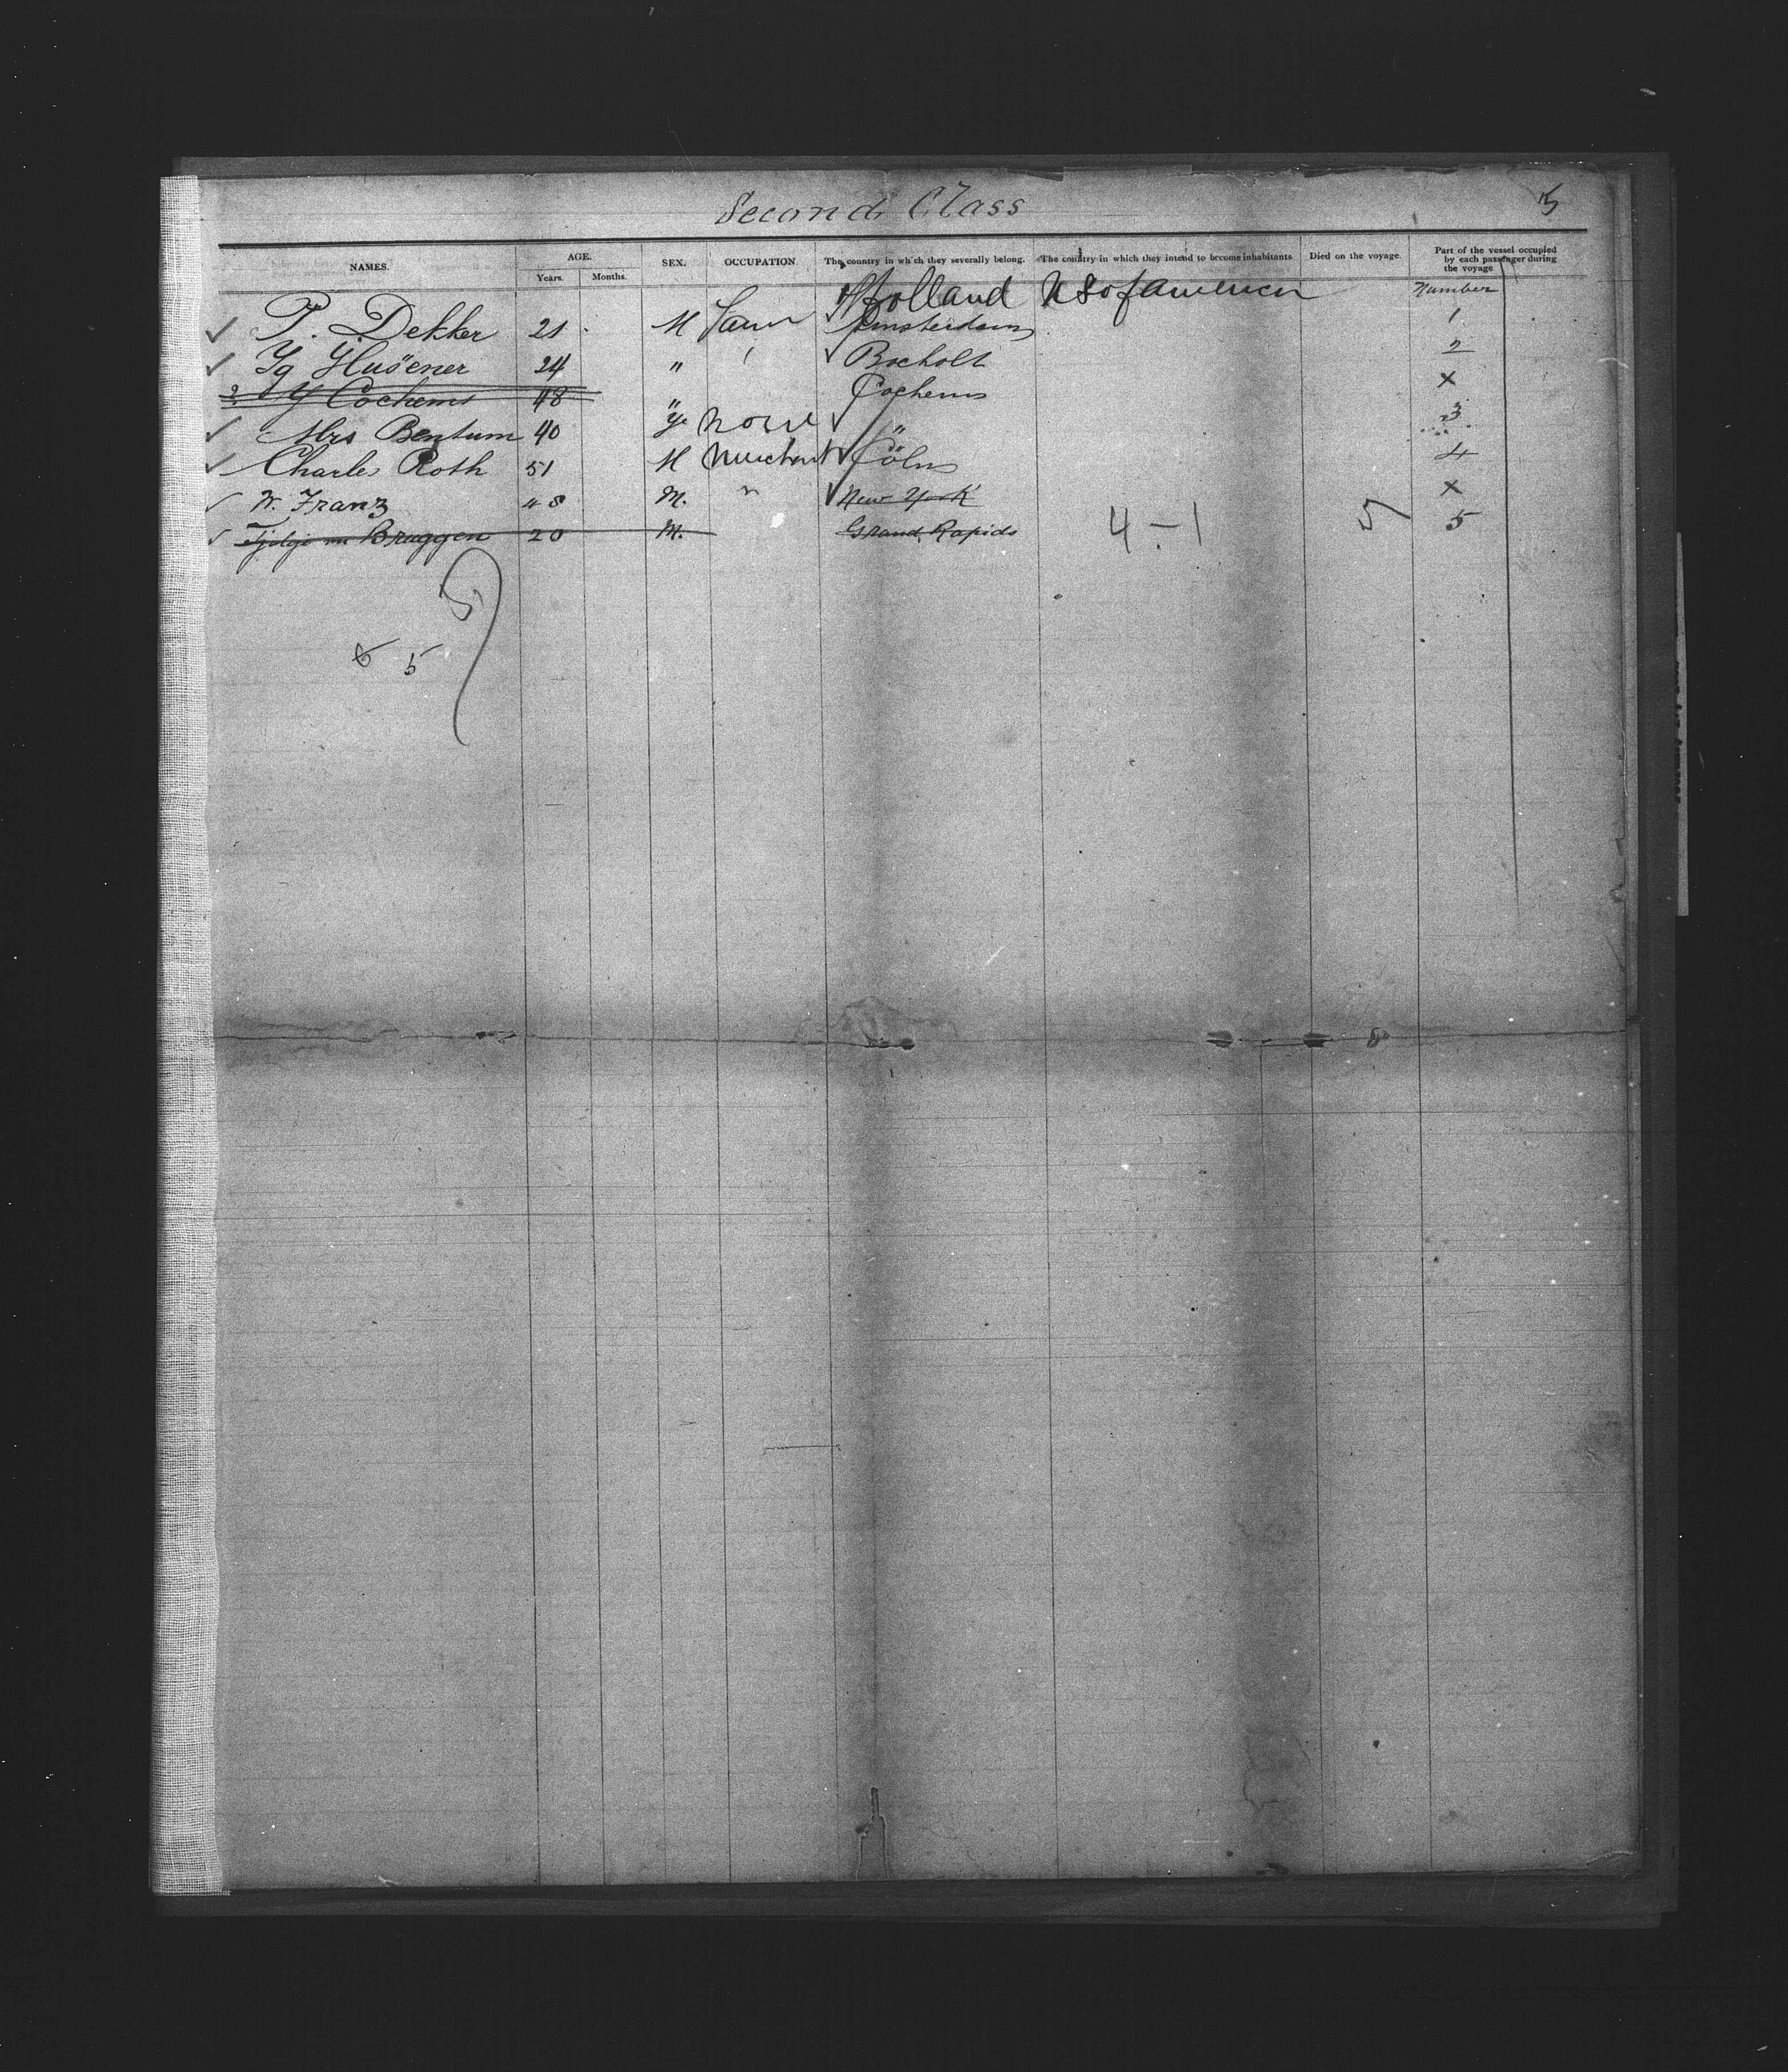 Second Class 5
NAMES. AGE. Years. Months. SEX. OCCUPATION. The country in which they severally belong. The country in which they intend to become inhabitants Died on the voyage. Part of the vessel occupied by each passenger during the voyage
Holland US of America Number
P. Dekker 21 M Farmer Amsterdam 1
Ig Hüsener 24 " Bocholt 2
Y Cochems 48 " Cochems x
Mrs Bentum 40 none " 3
Charles Roth 51 M Merchant Cöln 4
W. Franz 48 M. " New York x
Bruggen 20 M. Grand Rapids 4-1 5 5
5
6 5